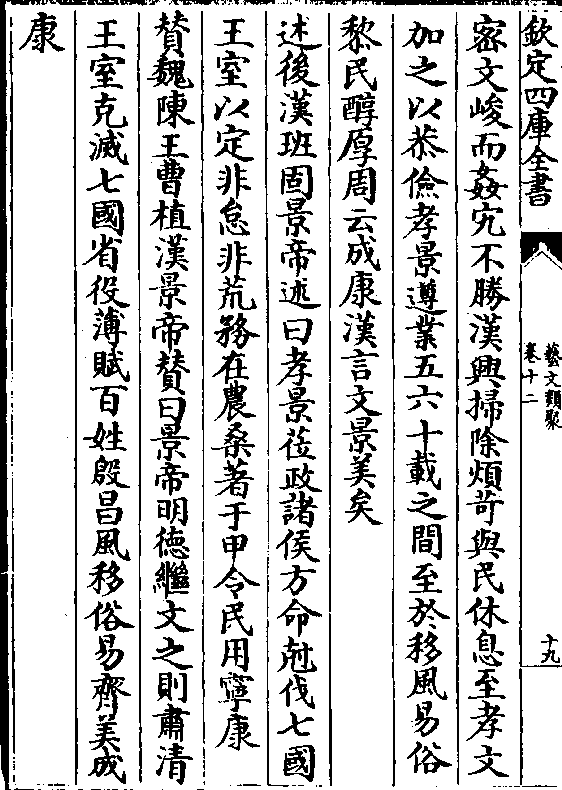 欽定四庫全書
藝文類聚
卷十二
十九
密文峻而姦宄不勝漢興掃除煩苛與民休息至孝文
加之以恭儉孝景遵業五六十載之間至於移風易俗
黎民醇厚周云成康漢言文景美矣
述後漢班固景帝述曰孝景莅政諸侯方命尅伐七國
王室以定非怠非荒務在農桑著于甲令民用寧康
贊魏陳王曹植漢景帝贊曰景帝明徳繼文之則肅清
王室克滅七國省役薄賦百姓殷昌風移俗易齊美成
康